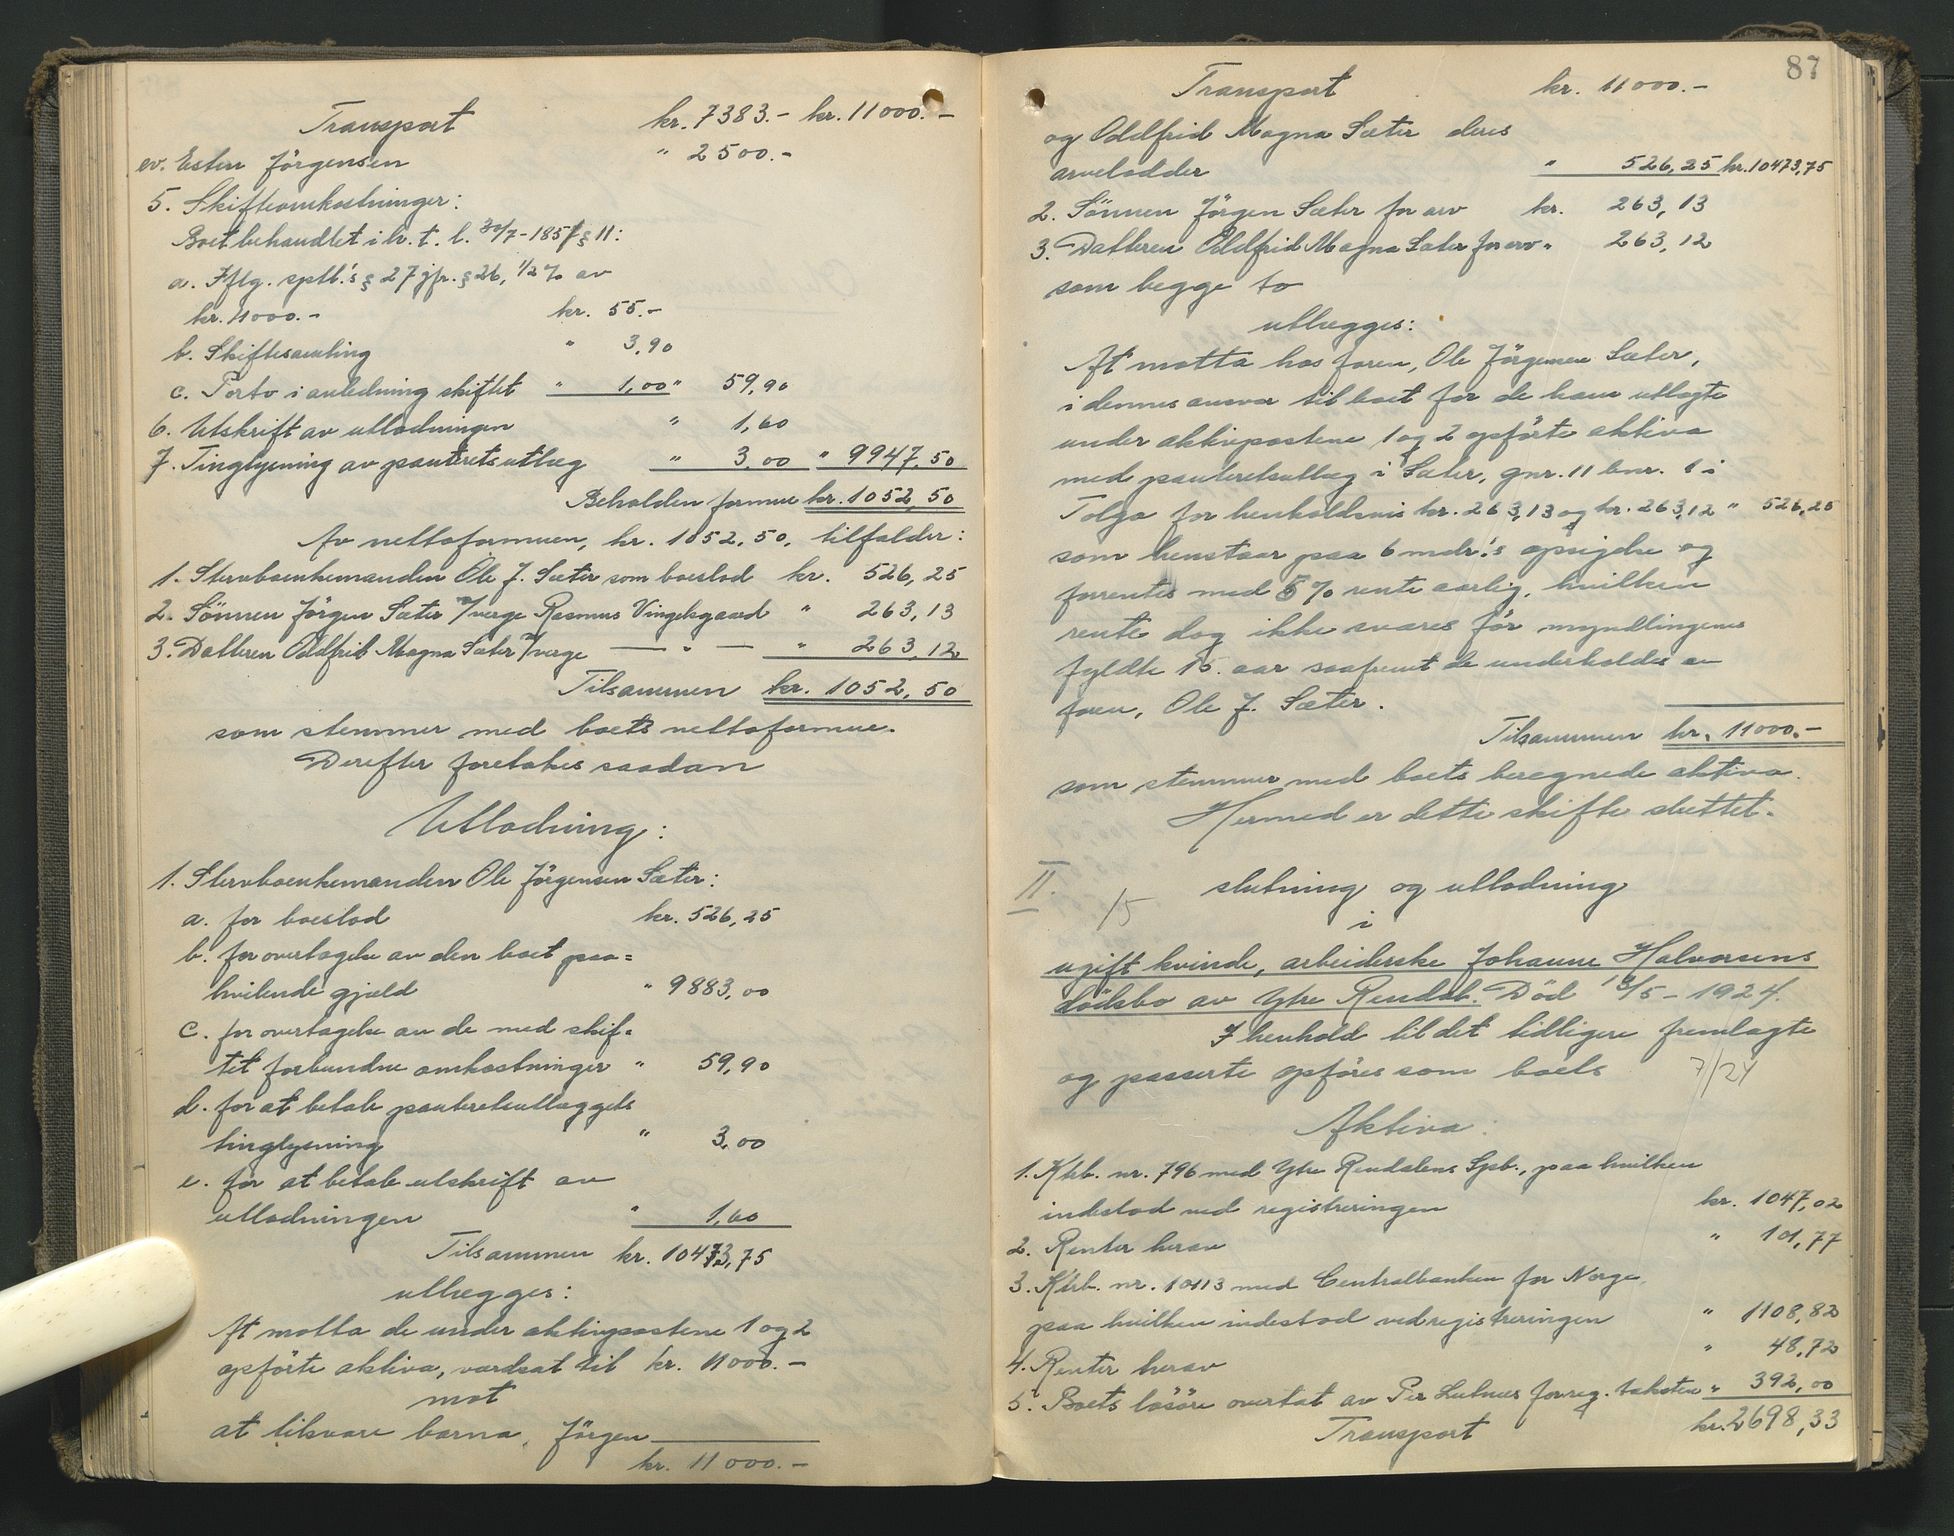 Transport kr. 7383.- kr. 11000.-
ev. Estern Jörgensen " 2500.-
5. Skifteomkostninger:
Boet behandlet i h. t. l. 30/7-1851 § 11:
a. Iflg. sptl.'s § 27 jfr. § 26, 1/2 % av
kr. 11000.- kr. 55.-
b. Skiftesamling " 3,90
c. Porto i anledning skiftet " 1,00 " 59,90
6. Utskrift av utlodningen " 1,60
7. Tinglysning av panteretsutlæg " 3,00 " 9947,50
Beholden formue kr. 1052,50
Av nettoformuen, kr. 1052,50, tilfalder:
1. Stervboenkemanden Ole J. Sæter som boeslod kr. 526,25
2. Sönnen Jörgen Sæter m/verge Rasmus Vingelsgaard " 263,13
3. Datteren Oddfrid Magna Sæter m/verge — " — " 263,12
Tilsammen kr. 1052,50
som stemmer med boets nettoformue.
Derefter foretokes saadan
Utlodning:
1. Stervboenkemanden Ole Jörgensen Sæter:
a. for boeslod kr. 526,25
b. for overtagelse av den boet paa=
hvilende gjæld " 9883,00
c. for overtagelse av de med skif=
tet forbundne omkostninger " 59,90
d. for at betale panteretsutlæggets
tinglysning " 3,00
e. for at betale utskrift av
utlodningen " 1,60
Tilsammen kr. 10473,75
utlægges:
At motta de under aktivpostene 1 og 2
opförte aktiva, værdsat til kr. 11000.-
mot
at tilsvare barna, Jörgen
kr. 11000.-
87
Transport kr. 11000.-
og Oddfrid Magna Sæter deres
arvelodder " 526,25 kr. 10473,75
2. Sönnen Jörgen Sæter for arv kr. 263,13
3. Datteren Oddfrid Magna Sæter for arv " 263,12
som begge to
utlægges:
At motta hos faren, Ole Jörgensen Sæter,
i dennes ansvar til boet for de ham utlagte
under aktivpostene 1 og 2 opförte aktiva
med panteretsutlæg i Sæter, gnr. 11 bnr. 1 i
Tolga for henholdsvis kr. 263,13 og kr. 263,12 " 526,25
som henstaar paa 6 mdr.'s opsigelse og
forrentes med 5 % rente aarlig, hvilken
rente dog ikke svares för myndlingenes
fyldte 15. aar saafremt de underholdes av
faren, Ole J. Sæter.
Tilsammen kr. 11000.-
som stemmer med boets beregnede aktiva.
Hermed er dette skifte sluttet.
II. 15 slutning og utlodning
i
ugift kvinde, arbeiderske Johanne Halvorsens
dödsbo av Ytre Rendal. Död 13/5-1924.
I henhold til det tidligere fremlagte
og passerte opföres som boets 7/24
Aktiva:
1. Ktrb. nr. 796 med Ytre Rendalens Spb., paa hvilken
indestod ved registreringen kr. 1047,02
2. Renter herav " 101,77
3. Ktrb. nr. 10113 med Centralbanken for Norge,
paa hvilken indestod ved registreringen " 1108,82
4. Renter herav " 48,72
5. Boets lösöre overtat av Per Lutnes for reg. taksten " 392,00
Transport kr. 2698,33